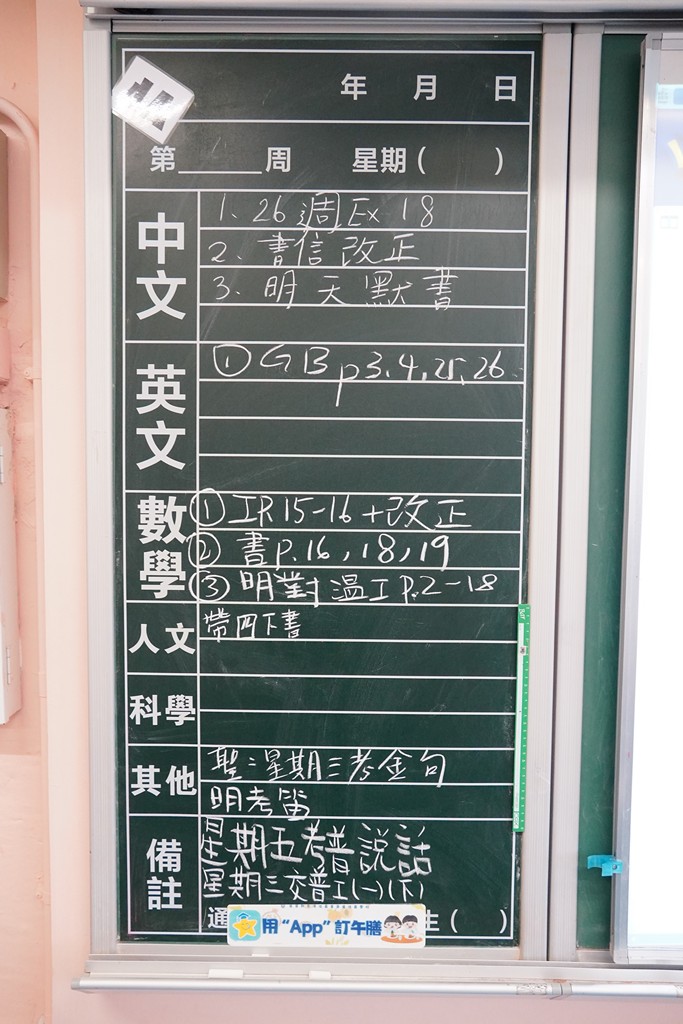 年 月 日
第______周 星期( )
中文
1、26週Ex 18
2、書信改正
3、明天默書
英文
① GB p3,4,25,26
數學
① IP.15-16+改正
② 書p.16,18,19
③ 明對溫工P.2-18
人文
帶四下書
科學
其他
聖:星期三考金句
明考笛
備註
星期五考普說話
星期三交普工(一)(下)
用“App”訂午膳
生( )